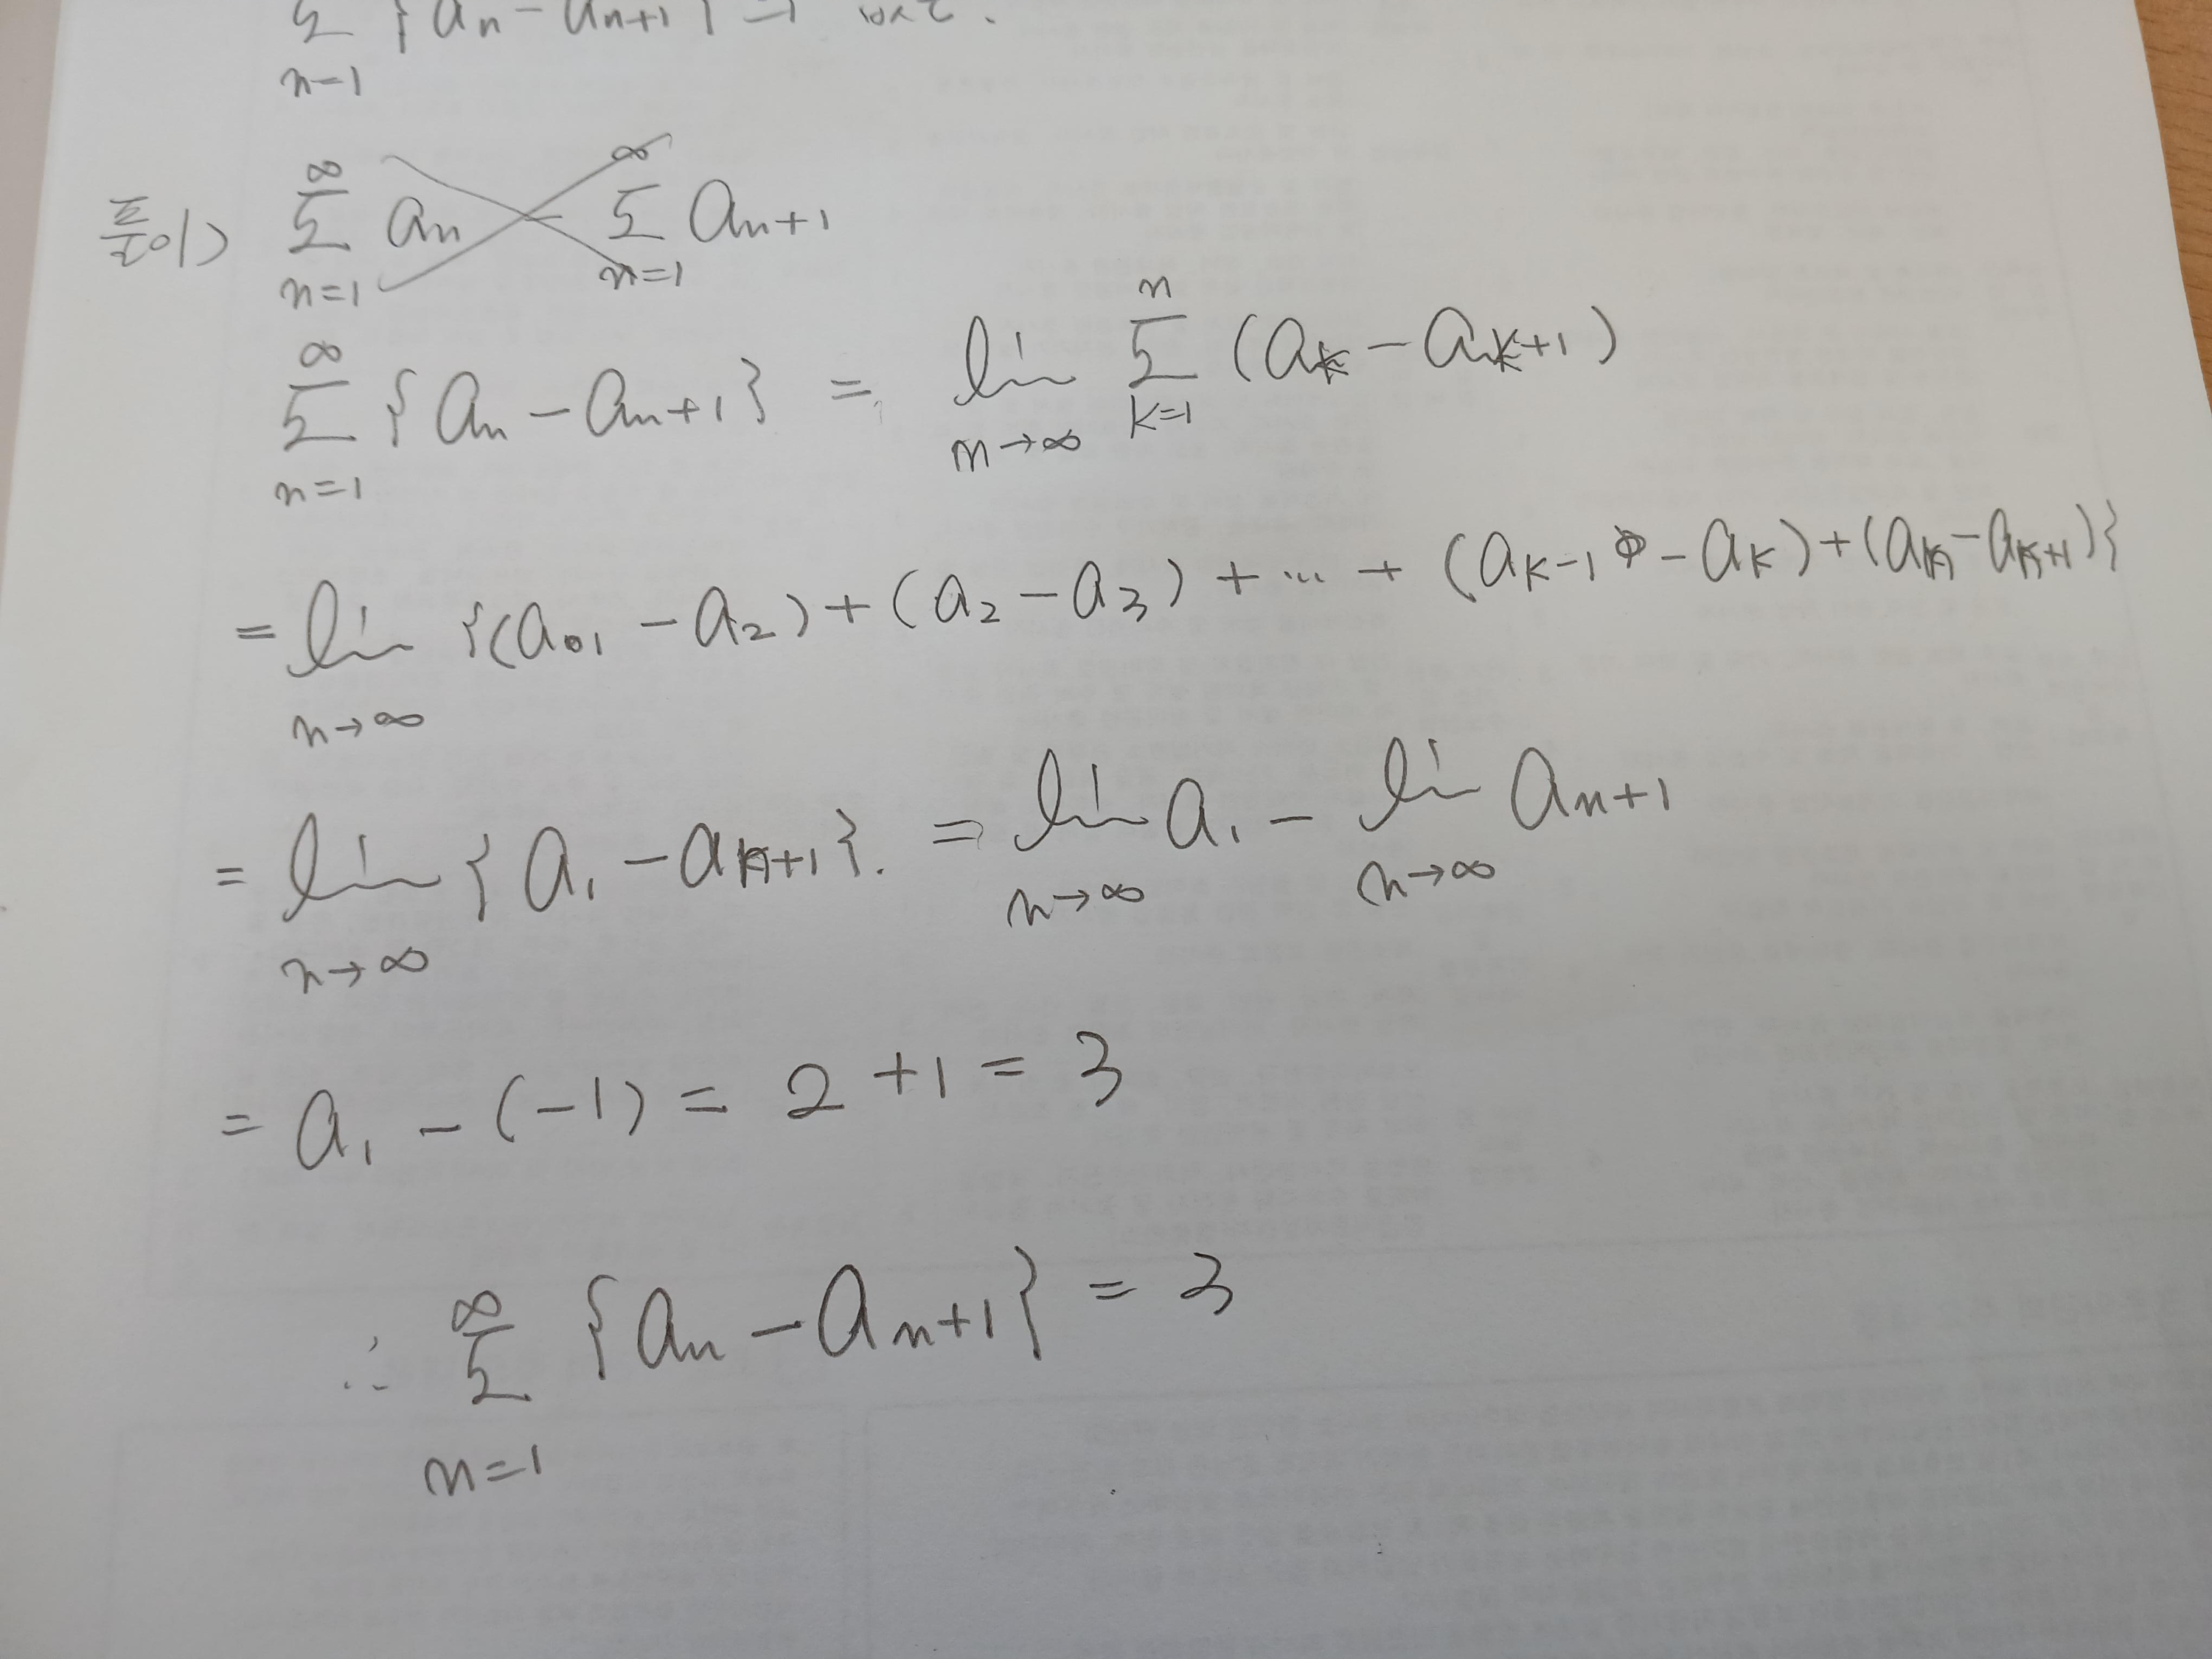 Σ {an - an+1}
n=1
풀이) ∞Σn=1 an - ∞Σn=1 an+1
∞Σn=1 {an - an+1} = lim n→∞ nΣk=1 (ak - ak+1)
= lim n→∞ {(a1 - a2) + (a2 - a3) + ... + (ak-1 - ak) + (an - an+1)}
= lim n→∞ {a1 - an+1}. = lim n→∞ a1 - lim n→∞ an+1
= a1 - (-1) = 2 + 1 = 3
∴ ∞Σn=1 {an - an+1} = 3